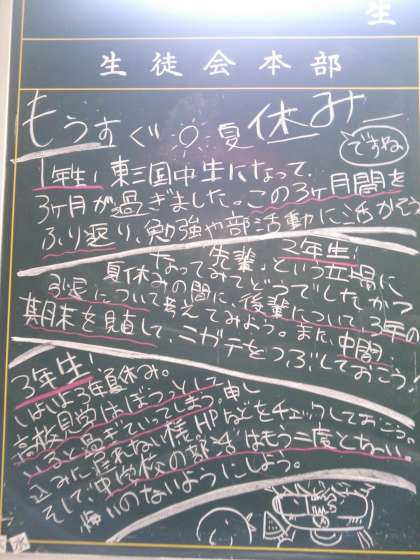 生
生徒会本部
もうすぐ夏休み
ですね
1年生!東三国中生になって、
3ヶ月が過ぎました。この3ヶ月間を
ふり返り、勉強や部活動に活かそう
2年生!
先輩という立場に
なってみてどうでしたか?
夏休みの間に、後輩について、3年の
引退について考えてみよう。また、中間、
期末を見直して、ニガテをつぶしておこう!
3年生!
いよいよ3年夏休み。
高校見学はぼうっとして
いると過ぎていってしまう。申し
込みに遅れない様HPなどをチェックしておこう。
そして、中学校の部活はもう二度とない。
悔いのないようにしよう。
水